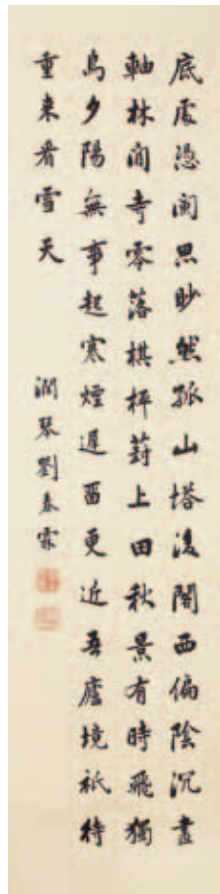 底處憑闌思眇然孤山塔後閣西偏陰沉畫
軸林間寺零落棋枰葑上田秋景有時飛獨
鳥夕陽無事起寒煙遲留更近吾廬境祇待
重来看雪天
潤琴劉春霖